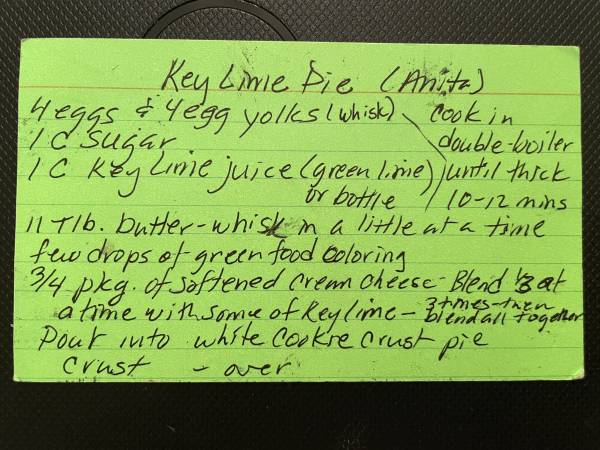 Key Lime Pie (Anita)
4 eggs & 4 egg yolks (whisk)
1 C sugar
1 C Key Lime juice (green lime)
or bottle
cook in
double-boiler
until thick
10-12 mins
11 Tlb. butter - whisk in a little at a time
few drops of green food coloring
3/4 pkg. of softened cream cheese - Blend at
a time with some of Key lime - 3 times - then
blend all together
Pour into white cookie crust pie
crust - over